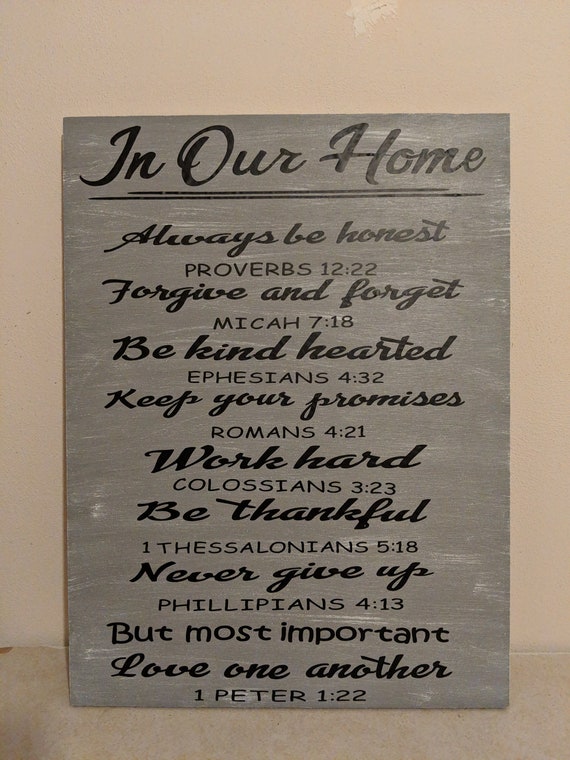 In Our Home
Always be honest
PROVERBS 12:22
Forgive and forget
MICAH 7:18
Be kind hearted
EPHESIANS 4:32
Keep your promises
ROMANS 4:21
Work hard
COLOSSIANS 3:23
Be thankful
1 THESSALONIANS 5:18
Never give up
PHILLIPIANS 4:13
But most important
Love one another
1 PETER 1:22